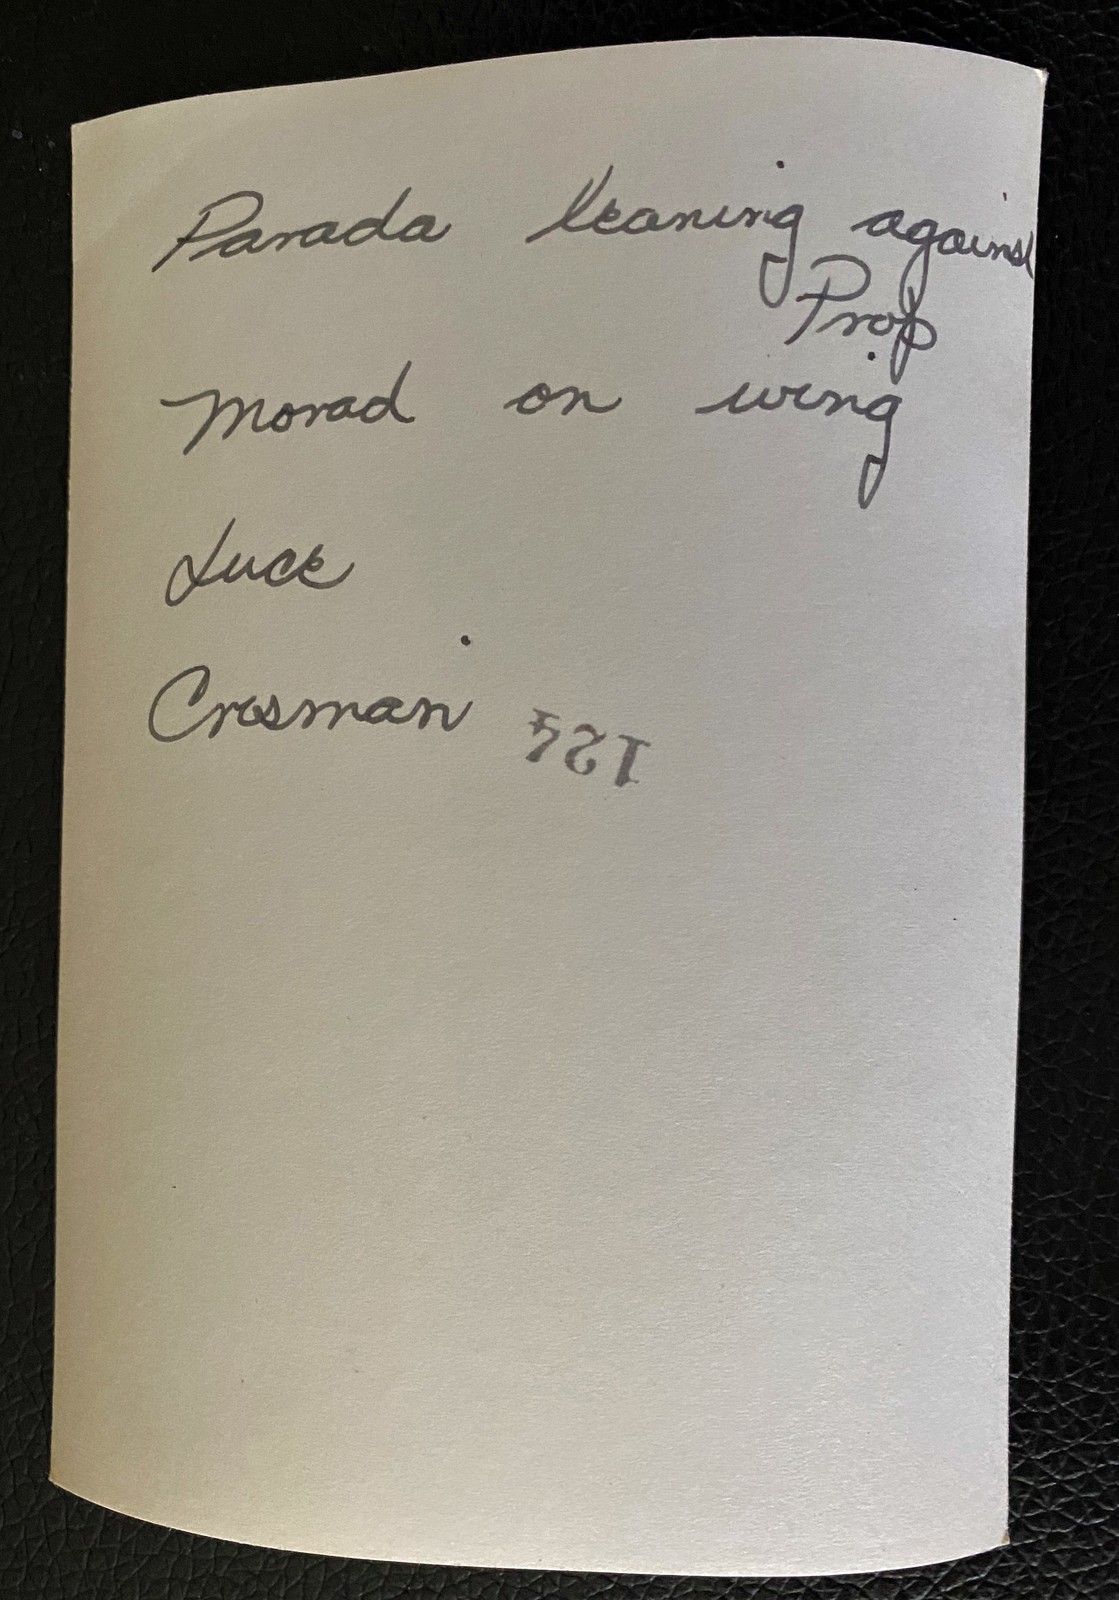 Parada leaning against
Prop
Morad on wing
Luce
Crosman
124